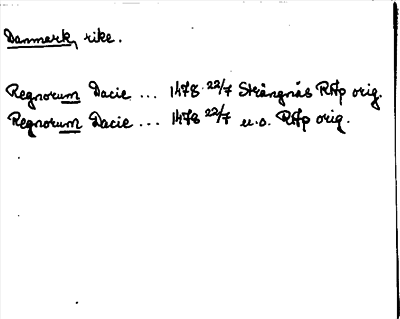 Danmark, rike.
Regnorum Dacie ... 1478 22/7 Strängnäs RAp orig.
Regnorum Dacie ... 1478 22/7 u.o. RAp orig.